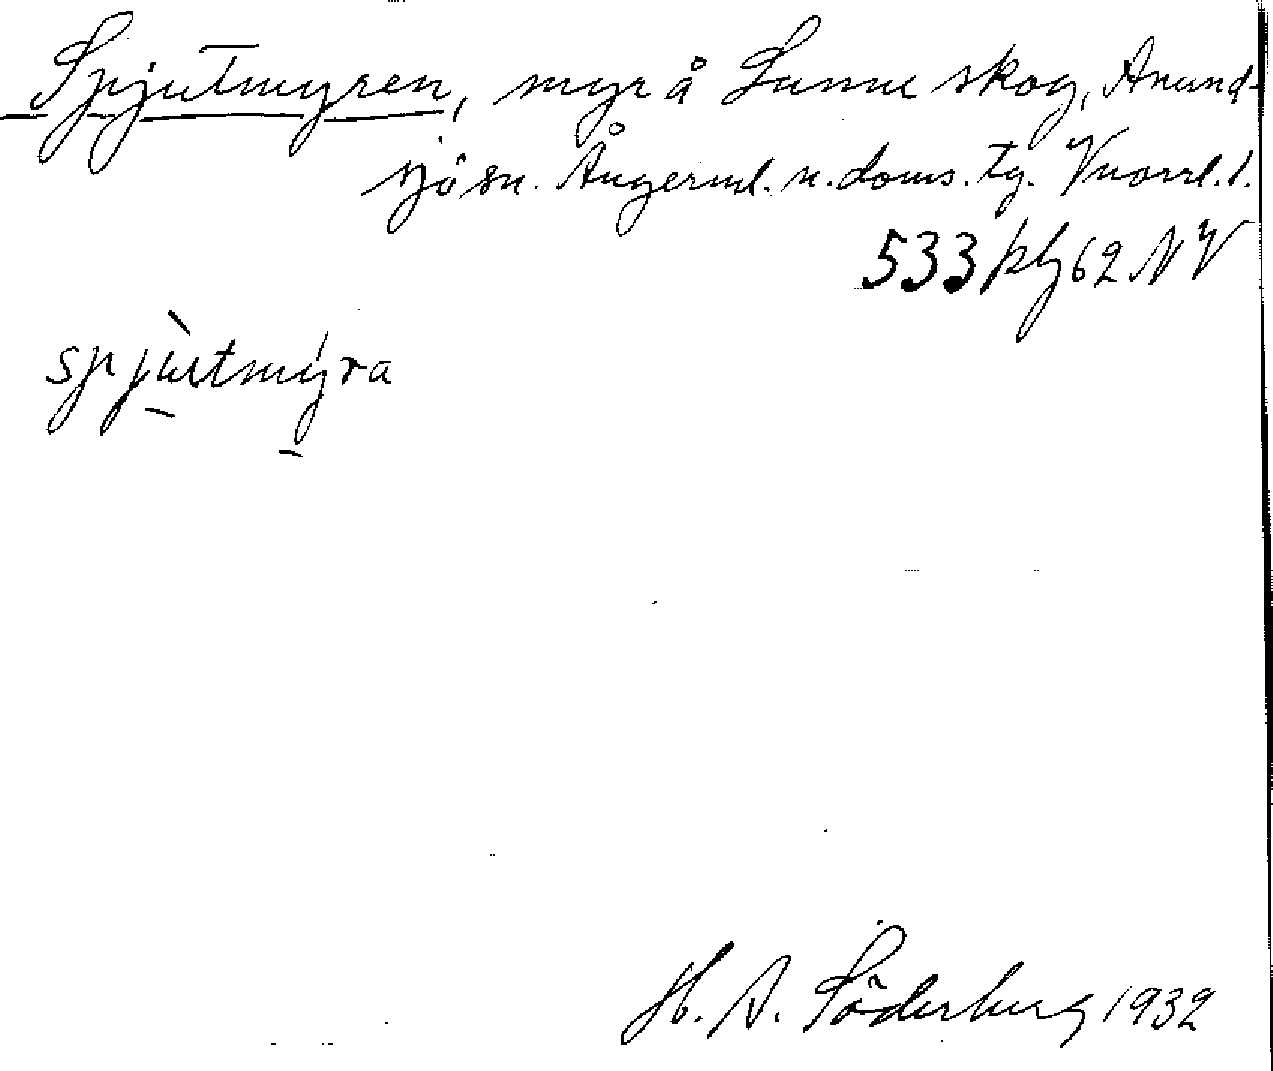 Spjutmyren, myr å Sunne skog, Anund-
sjö sn. Ångerml. n. doms. tg. Vnorrl. l.
533 plg 62 NV
spjùtmýra
H. A. Söderberg 1932